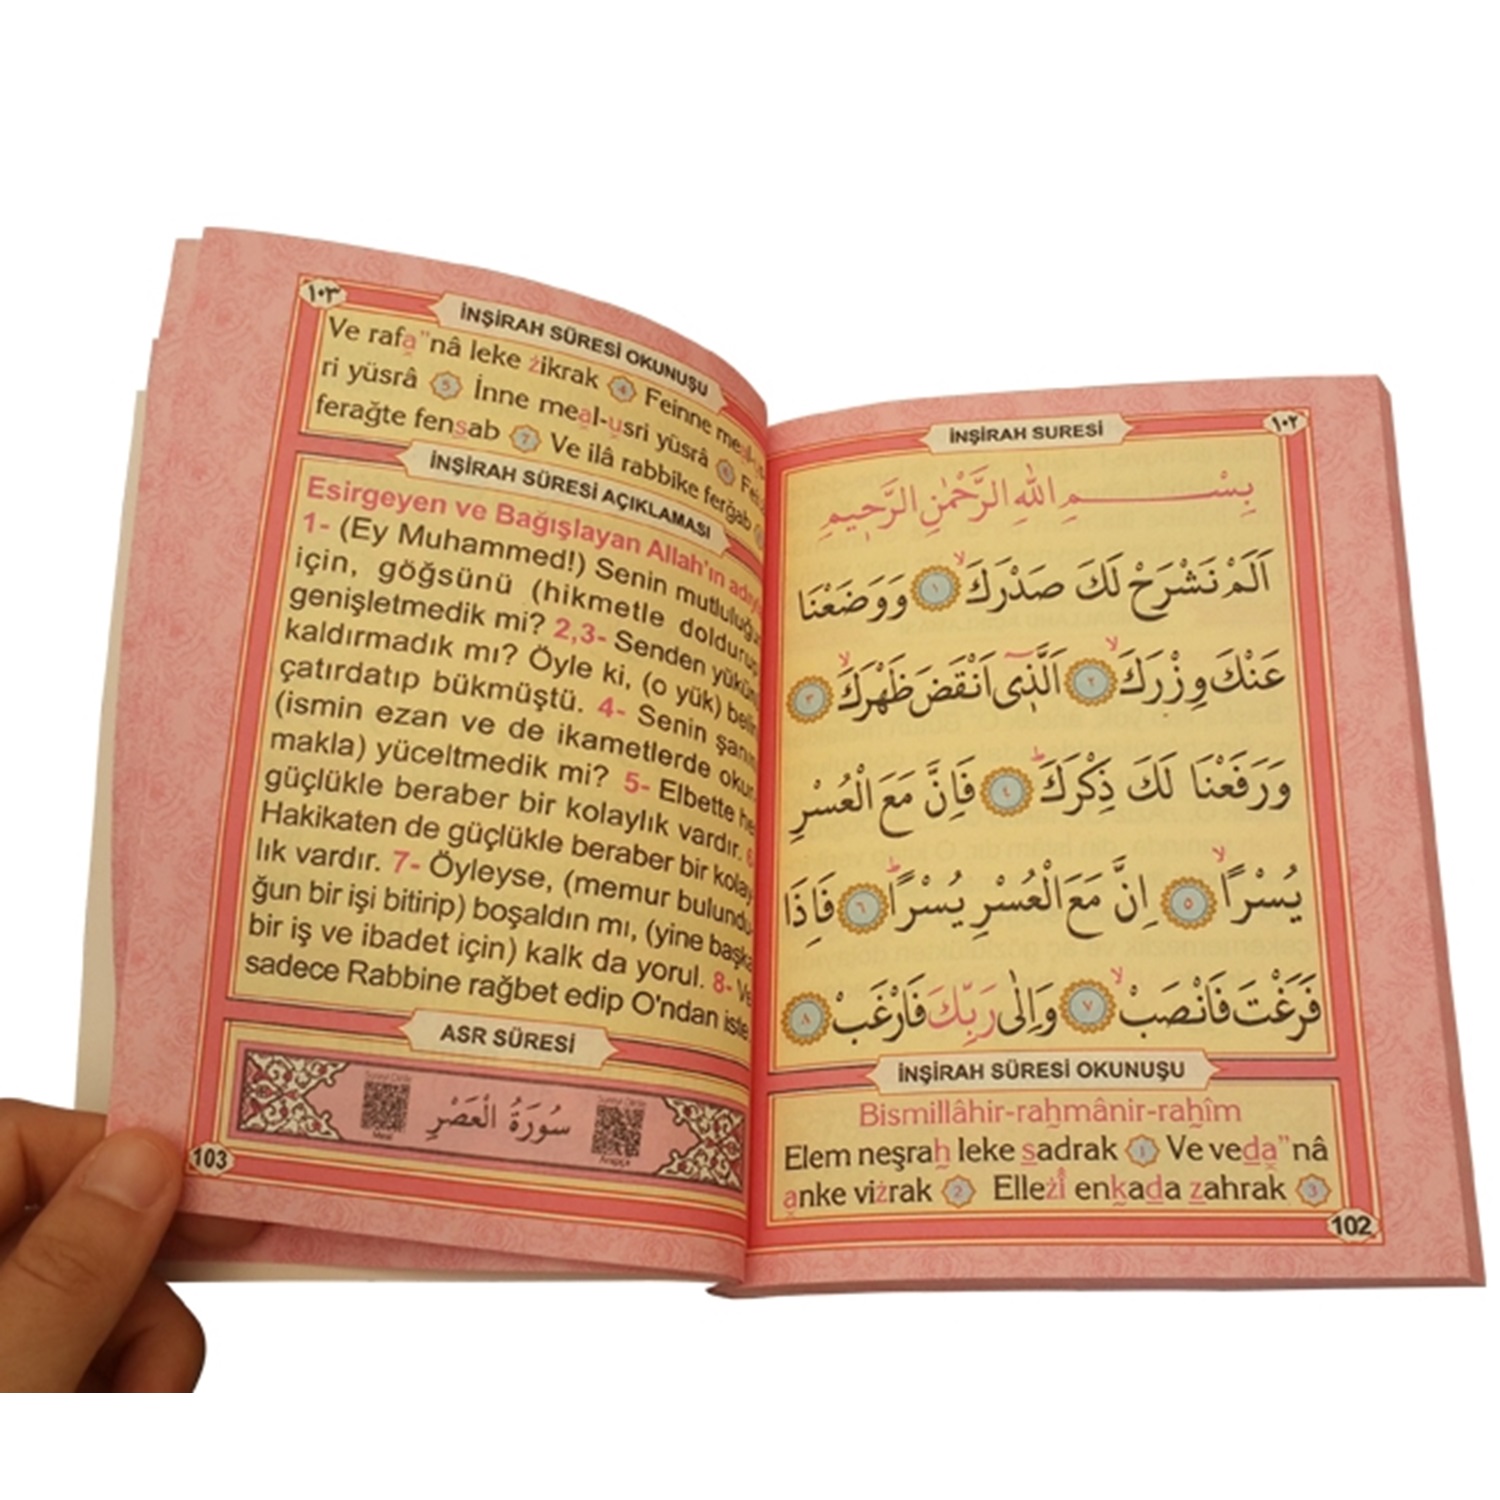 İNŞİRAH SURESİ
١٠٢
بِسْمِ اللهِ الرَّحْمٰنِ الرَّحِيمِ
اَلَمْ نَشْرَحْ لَكَ صَدْرَكَۙ ١ وَوَضَعْنَا
عَنْكَ وِزْرَكَۙ ٢ اَلَّذ۪ٓى اَنْقَضَ ظَهْرَكَۙ ٣
وَرَفَعْنَا لَكَ ذِكْرَكَۜ ٤ فَاِنَّ مَعَ الْعُسْرِ
يُسْرًاۙ ٥ اِنَّ مَعَ الْعُسْرِ يُسْرًاۜ ٦ فَاِذَا
فَرَغْتَ فَانْصَبْۙ ٧ وَاِلٰى رَبِّكَ فَارْغَبْ ٨
İNŞİRAH SÛRESİ OKUNUŞU
Bismillâhir-raḥmânir-raḥîm
Elem neşraḥ leke sadrak 1 Ve veda"nâ
anke viżrak 2 Elleżî enkada zahrak 3
102
١٠٣
İNŞİRAH SÛRESİ OKUNUŞU
Ve rafa"nâ leke żikrak 4 Feinne
ri yüsrâ 5 İnne meal-usri yüsrâ 6
ferağte fensab 7 Ve ilâ rabbike ferğab
İNŞİRAH SÛRESİ AÇIKLAMASI
Esirgeyen ve Bağışlayan Allah'ın adıyla
1- (Ey Muhammed!) Senin mutluluğun
için, göğsünü (hikmetle doldurup
genişletmedik mi? 2,3- Senden yükünü
kaldırmadık mı? Öyle ki, (o yük) belini
çatırdatıp bükmüştü. 4- Senin şanını
(ismin ezan ve de ikametlerde okun
makla) yüceltmedik mi? 5- Elbette her
güçlükle beraber bir kolaylık vardır. 6
Hakikaten de güçlükle beraber bir kolay
lık vardır. 7- Öyleyse, (memur bulundu-
ğun bir işi bitirip) boşaldın mı, (yine başka
bir iş ve ibadet için) kalk da yorul. 8- Ve
sadece Rabbine rağbet edip O'ndan iste
ASR SÛRESİ
سُورَةُ الْعَصْرِ
Meal
Arapça
103